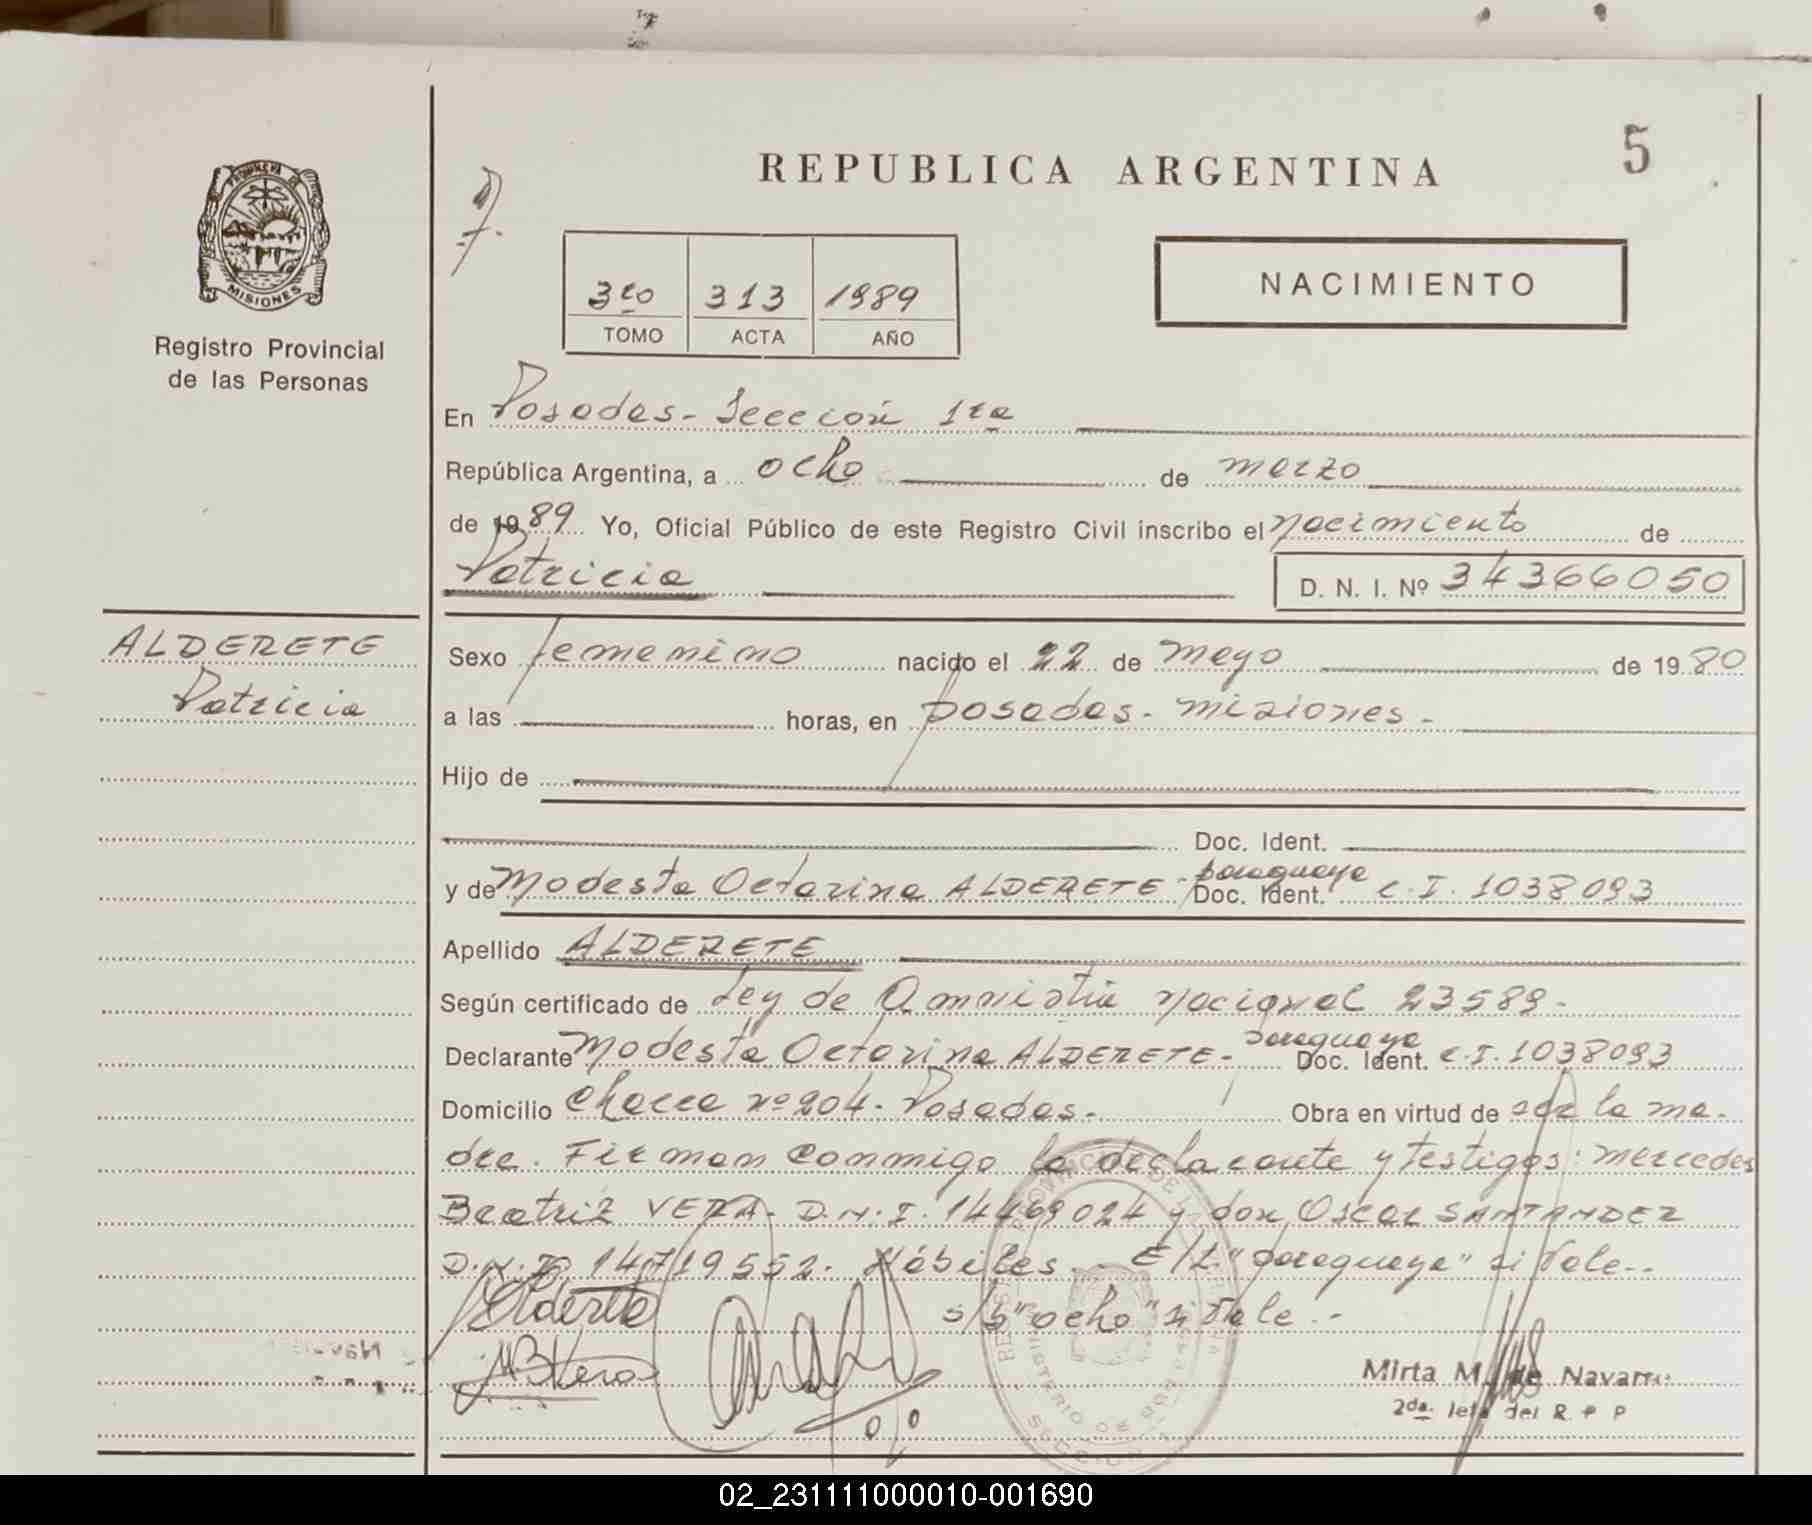 5
REPUBLICA ARGENTINA
PROVINCIA DE
MISIONES
Registro Provincial
de las Personas
3ro 313 1989
TOMO ACTA AÑO
NACIMIENTO
En Posadas - Sección 1ra
República Argentina, a ocho de marzo
de 1989 Yo, Oficial Público de este Registro Civil inscribo el nacimiento de
Patricia D. N. I. Nº 34366050
ALDERETE
Patricia
Sexo femenino nacido el 22 de mayo de 1980
a las horas, en posadas - misiones -
Hijo de
Doc. Ident.
y de Modesta Octavina ALDERETE - Doc. Ident. paraguaya C.I. 1038093
Apellido ALDERETE
Según certificado de Ley de Amnistía nacional 23589 -
Declarante Modesta Octavina ALDERETE - paraguaya Doc. Ident. C.I. 1038093
Domicilio Chacra nº 204 - Posadas - Obra en virtud de ser la ma-
dre. Firman conmigo la declarante y testigos: mercedes
Beatriz VERA - D.N.I. 14469024 y don Oscar SANTANDER
D.N.I. 14719552. Hábiles. - E/L "paraguaya" si vale. -
s/b "ocho" si vale. -
Alderete
MBVera
Mirta M. de Navarro
2da. Jefe del R. P P
SECCION
02_231111000010-001690